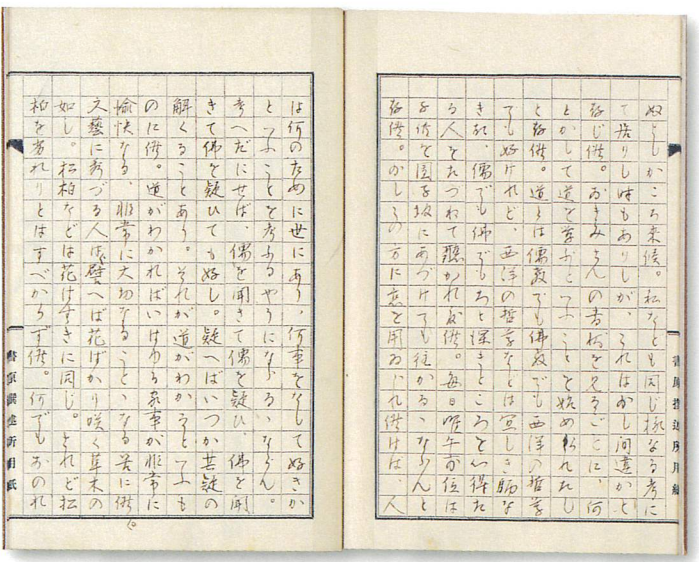 しかころ来候。私なども同じ様なる考に
て居りし時もありしが、これは少し間違かと
存じ候。おきみさんの書状を見るごとに、何
とかして道を学ぶといふことを始められたし
と存候。道とは儒教でも佛教でも西洋の哲学
でも好けれど、西洋の哲学などは宜しき師な
きゆゑ、儒でも佛でもちと深きところを心得た
る人をたづねて聴かれ度候。毎日曜午前位は
子供を團子坂にあづけても往かるゝならんと
存候。少しその方に意を用ゐられ候はば、人
は何のために世にあり、何事をなして好きか
といふことを考ふるやうになるゝならん。
考へだにせば、儒を聞きて儒を疑ひ、佛を聞
きて佛を疑ひても好し。疑へばいつか其疑の
解くることあり。それが道がわかるといふも
のに候。道がわかればいはゆる家事が非常に
愉快なる、非常に大切なることゝなる筈に候
文藝に秀づる人は譬へば花ばかり咲く草木の
如し。松柏などは花はなきに同じ。されど松
柏を劣れりとはすべからず候。何でもおのれ